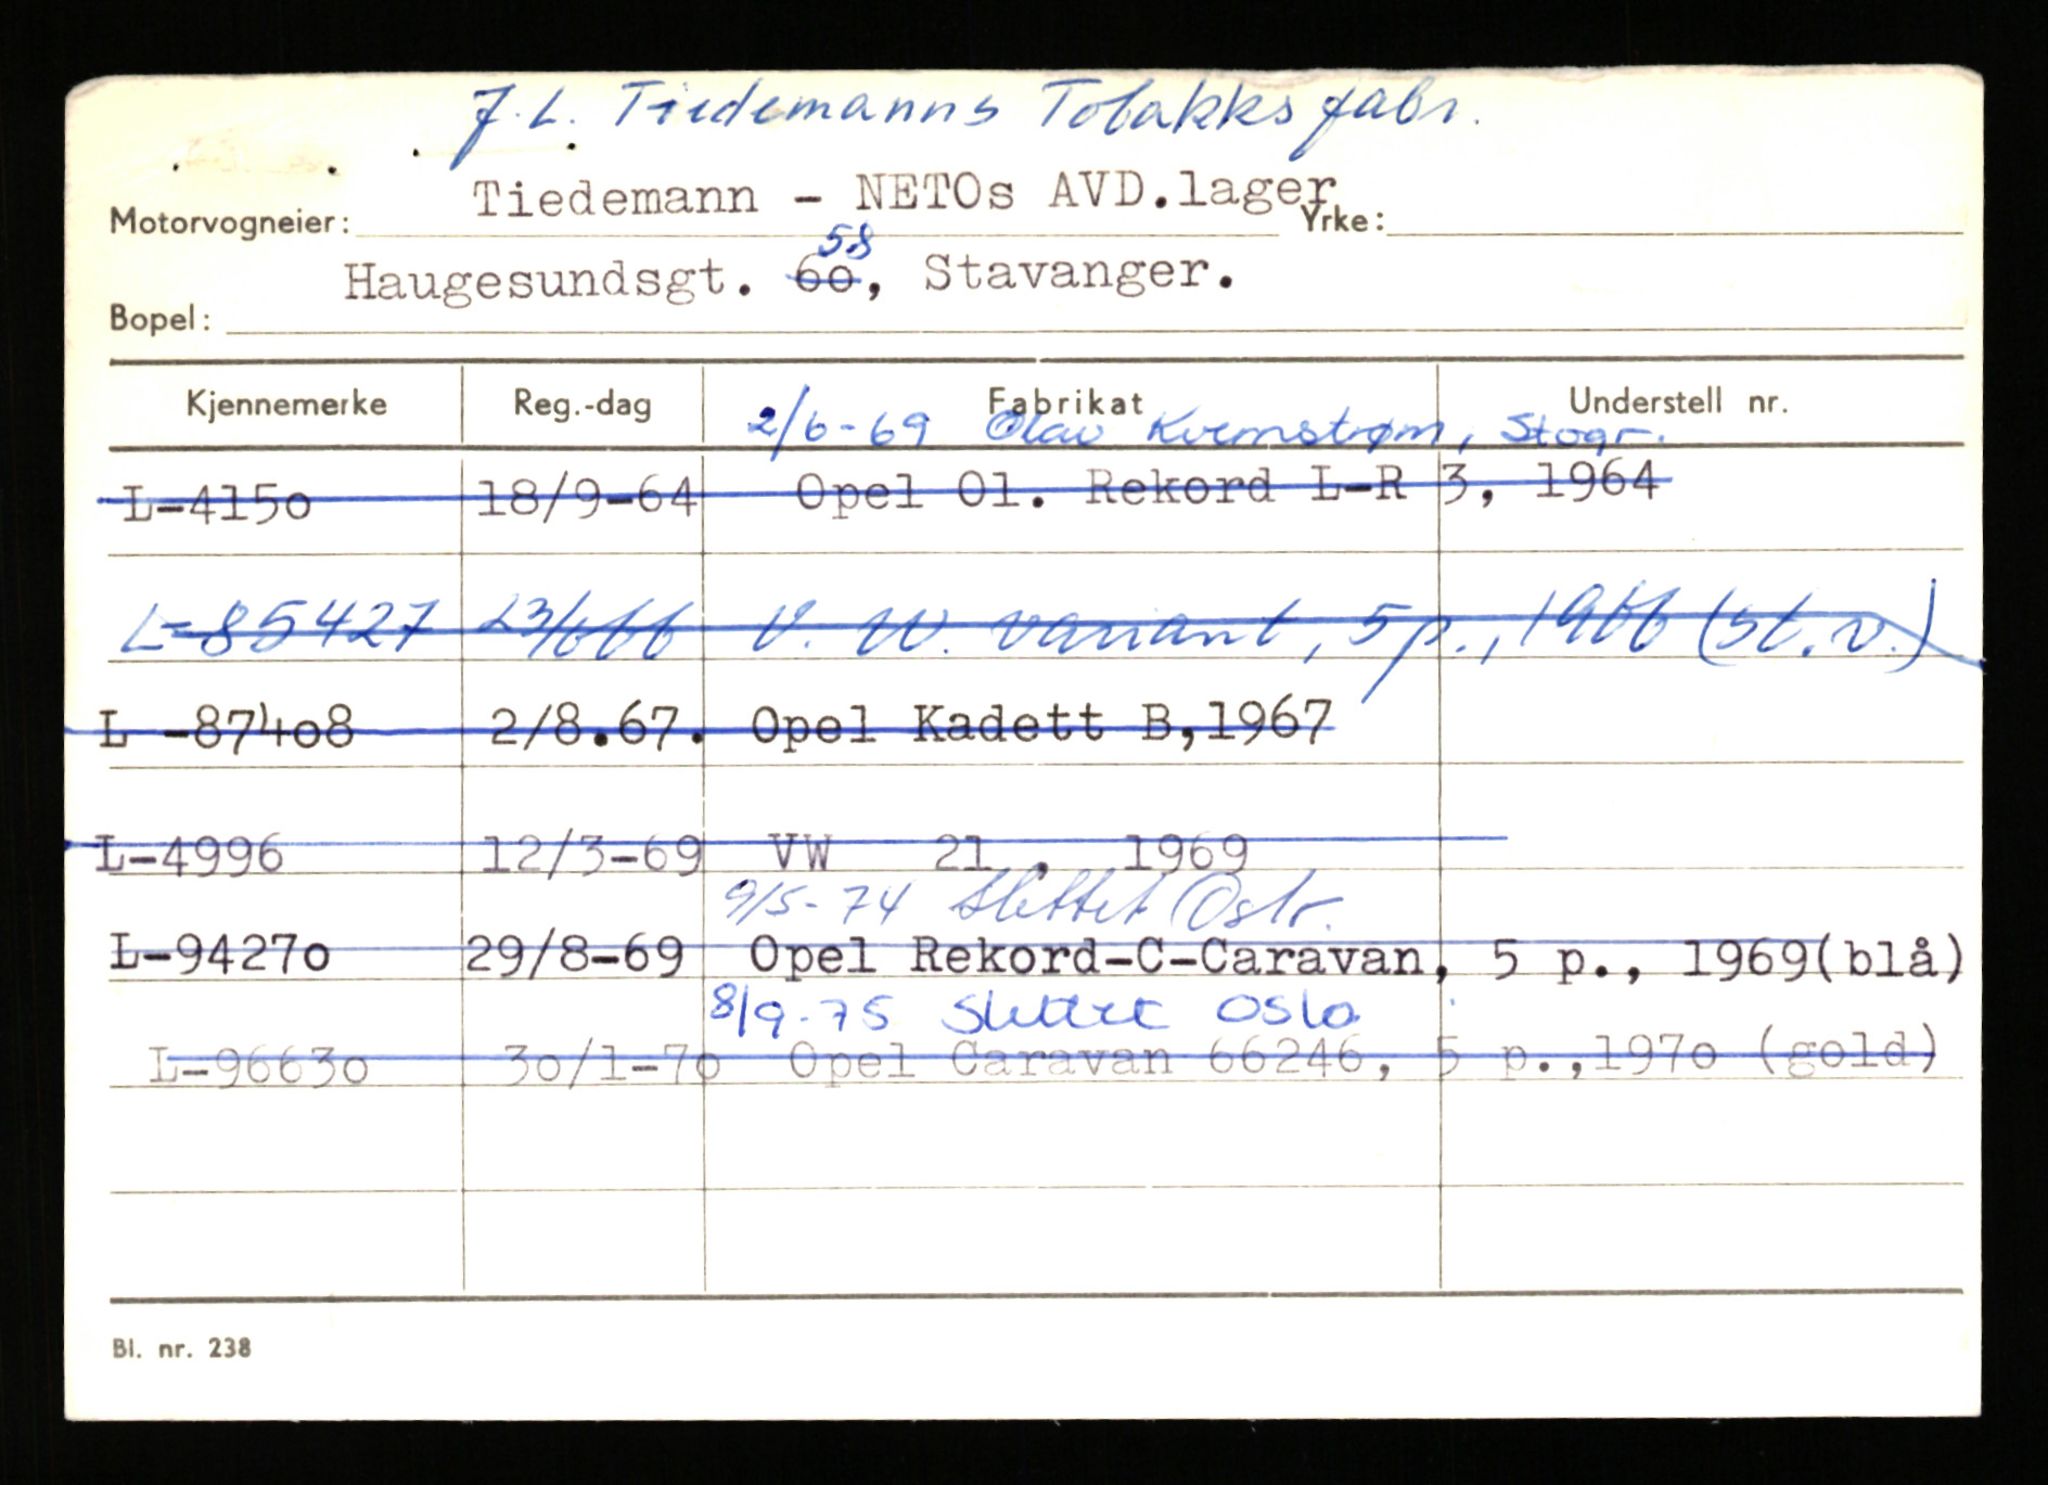 J. L. Tiedemanns Tobakksfabr.
Motorvogneier: Tiedemann - NETOs AVD.lager Yrke:
58
Bopel: Haugesundsgt. 60, Stavanger.
Kjennemerke Reg.-dag Fabrikat Understell nr.
2/6-69 Olav Kvernstrøm, Stogr.
L-4150 18/9-64 Opel Ol. Rekord L-R 3, 1964
L-85427 23/6 66 V. W. variant, 5 p., 1966 (st.v.)
L -87408 2/8.67. Opel Kadett B,1967
L-4996 12/3-69 VW 21 , 1969
9/5-74 Slettet Oslo.
L-94270 29/8-69 Opel Rekord-C-Caravan, 5 p., 1969(blå)
8/9-75 Slettet Oslo
L-96630 30/1-70 Opel Caravan 66246, 5 p.,1970 (gold)
Bl. nr. 238